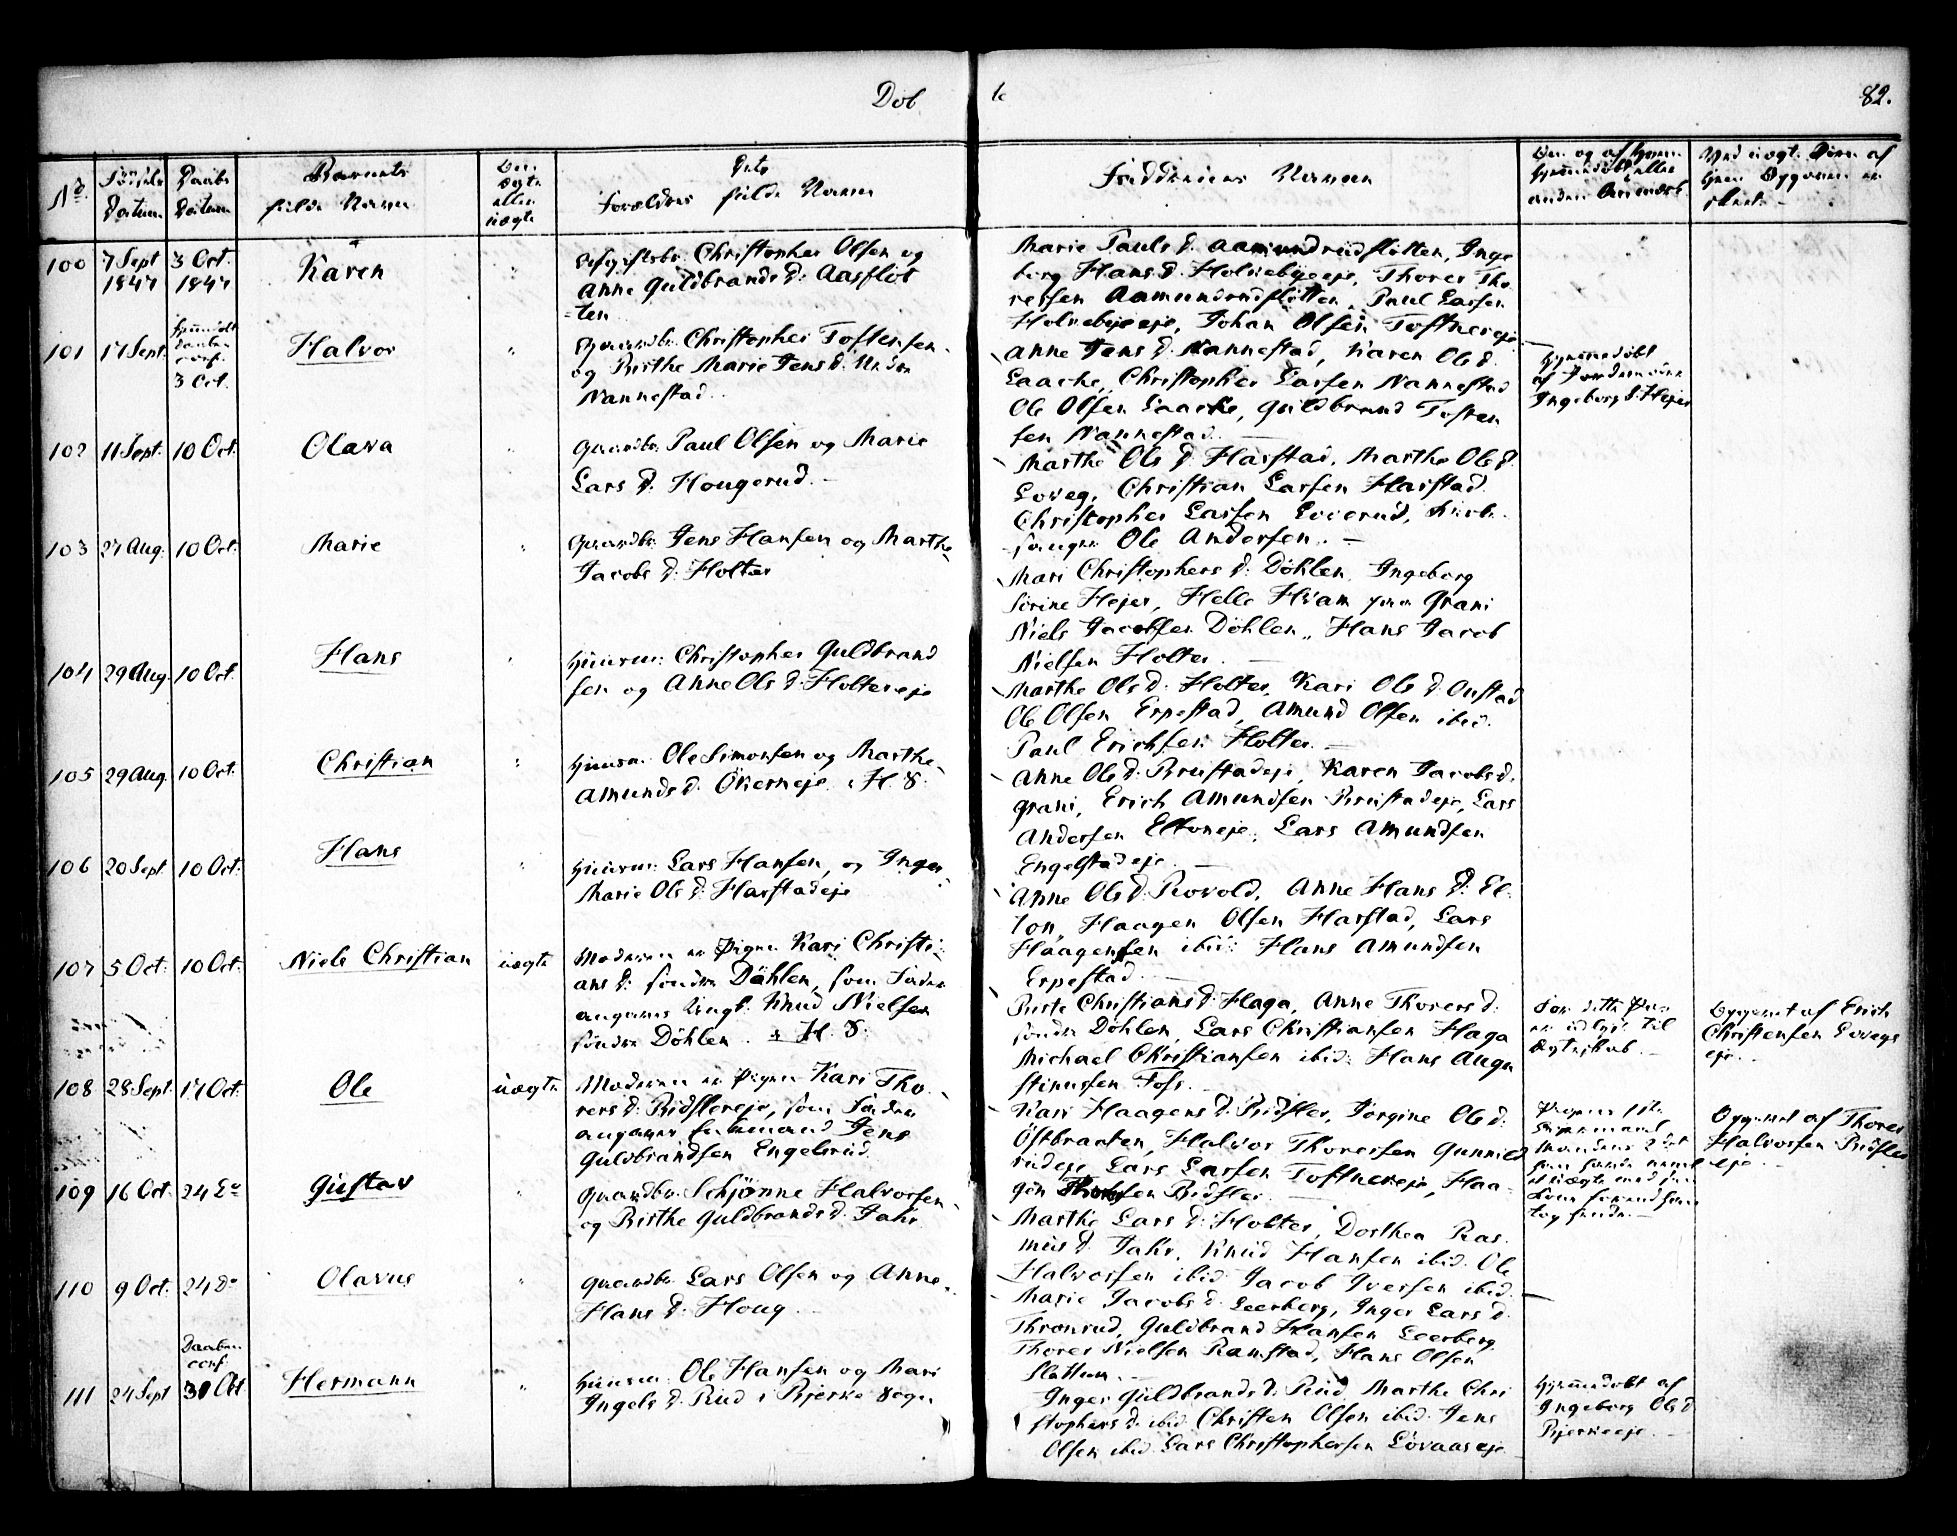 Döb
te
82.
No.
Fødsels Datum
Daabs Datum
Barnets fulde Navn
Om ægte eller uægte
Dets Forældres fulde Navne
Faddernes Navne
100
7 Sept 1847
3 Oct. 1847
Karen
Christopher Olsen og
Anne Guldbrands d. Aasflöt
=ten
Marie Pauls d. Aamundrudfløtten, Inge
borg Hans d. Holkebyeeje, Thorer Tho
ressen Aamundrudfløtten, Paul Larsen
Holkebyeeje, Johan Olsen Toftnereje
101
17 Sept.
3 Oct.
Halvor
Gaardbr. Christopher Toftensen
og Birthe Marie Jens d. Nedre
Nannestad.
Anne Jens d. Nannestad, Karen Ols d.
Laache, Christopher Larsen Nannestad
Ole Olsen Laache, Guldbrand Tosten
sen Nannestad.
Hjemmedøbt
af
Ingeborg S. Hejer
102
11 Sept.
10 Oct.
Olava
Gaardbr. Paul Olsen og Marie
Lars d. Hougerud.
Marthe Ols d. Harstad, Marthe Ols d.
Loveg, Christian Larsen Harstad
Christopher Larsen Loverud, Kirke
sanger Ole Andersen.
103
27 Aug.
10 Oct.
Marie
Gaardbr. Jens Hansen og Marthe
Jacobs d. Holter
Mari Christophers d. Döhlen, Ingeborg
Sörine Hejer, Helle Hvam Grani
Niels Jacobsen Döhlen, Hans Jacob
Nielsen Holter.
104
29 Aug.
10 Oct.
Hans
Huusm. Christopher Guldbrand
sen og Anne Ols d. Holtereje
Marthe Ols d. Holter, Kari Ols d. Onstad
Ole Olsen Erpestad, Amund Olsen ibid.
Paul Erichsen Holter.
105
29 Aug.
10 Oct.
Christian
Huusm. Ole Simonsen og Marthe
Amunds d. Ökerneje. H. S.
Anne Ols d. Brustadeje, Karen Jacobs d.
Grani, Erich Amundsen Brustadeje, Lars
Andersen Eltoneje, Lars Amundsen
Engelstadeje.
106
20 Sept
10 Oct.
Hans
Huusm. Lars Hansen, og Inger
Marie Ols d. Harstadeje
Anne Ols d. Rovold, Anne Hans d. El
ton, Haagen Olsen Harstad, Lars
Haagensen ibid: Hans Amundsen
Erpestad.
107
5 Oct.
10 Oct.
Niels Christian
uægte
Moderen er Pigen Kari Christi
ans d. søndre Döhlen, som Fader
angaves Ungk. Knud Nielsen
søndre Döhlen. H. S.
Birte Christians d. Haga, Anne Thorers d.
søndre Döhlen, Lars Christiansen Haga
Michael Christiansen ibid: Hans Augu
stinussen Foss.
For dette Par
er udlyst til
Ægteskab.
Opgivet af Erich
Christensen Lovegs
eje.
108
28 Sept.
17 Oct.
Ole
uægte
Moderen er Pigen Kari Tho
rers d. Ridslereje, som Fader
angaves Enkemand Jens
Guldbrandsen Engelsrud.
Kari Haagens d. Ridsler, Jörgine Ols d.
Östbraaten, Halvor Thoresen Gunnild
rudeje, Lars Larsen Toftnereje, Haa
gen Thorsen Ridsler.
Opgivet af Thorer
Halvorsen Ridsler
eje.
109
16 Oct.
24 Do
Gustav
Gaardbr. Schjønne Halvorsen
og Birthe Guldbrands d. Jahr.
Marthe Lars d. Holter, Dorthea Ras
mus d. Jahr, Knud Hansen ibid. Ole
Halvorsen ibid Jacob Iversen ibid.
110
9 Oct.
24 Do
Olavus
Gaardbr. Lars Olsen og Anne
Hans d. Houg
Marie Jacobs d. Leerberg, Inger Lars d.
Thronrud, Guldbrand Hansen Leerberg
Thorer Nielsen Ramstad, Hans Olsen
Slattum.
111
24 Sept
Daaben conf. 31 Oct
Hermann
Huusm. Ole Hansen og Mari
Ingels d. Rud i Bjerke Sogn
Inger Guldbrands d. Rud, Marthe Chri
stophers d. ibid. Christen Olsen ibid. Jens
Olsen ibid. Lars Christophersen Lövaaseje
Hjemmedøbt af
Ingeborg Ols d
Bjerkeeje.